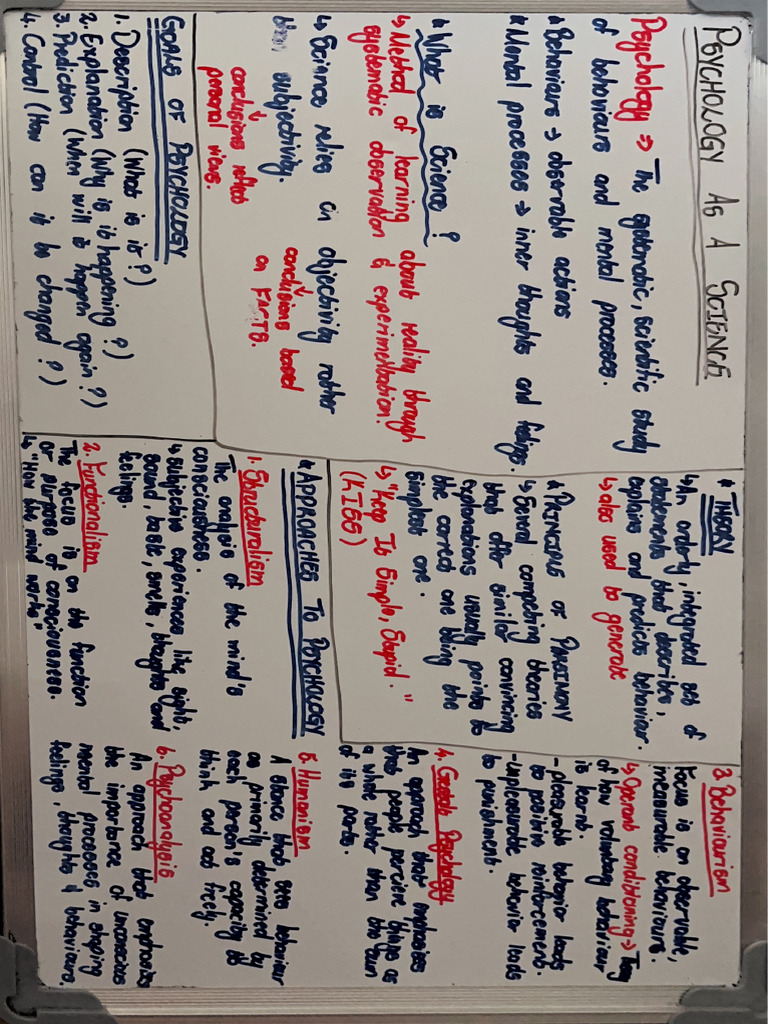 PSYCHOLOGY AS A SCIENCE
Psychology ⇒ The systematic, scientific study
of behaviours and mental processes.
* Behaviours → observable actions
* Mental processes → inner thoughts and feelings.
* What is Science?
↳ Method of learning about reality through
systematic observation & experimentation.
↳ Science relies on objectivity rather
subjectivity.
conclusions based
on FACTS.
conclusions reflect
personal views.
GOALS OF PSYCHOLOGY
1. Description (What is it?)
2. Explanation (Why is it happening?)
3. Prediction (When will it happen again?)
4. Control (How can it be changed?)
* THEORY
↳ An orderly, integrated set of
statements that describes,
explains and predicts behaviour.
↳ also used to generate
* PRINCIPLE OF PARSIMONY
↳ Several competing theories
that offer similar convincing
explanations usually points to
the correct one being the
simplest one.
↳ "Keep It Simple, Stupid."
(KISS)
* APPROACHES TO PSYCHOLOGY
1. Structuralism
The analysis of the mind's
consciousness.
↳ subjective experiences like sight,
sound, taste, smells, thoughts and
feelings.
2. Functionalism
The focus is on the function
or purpose of consciousness.
↳ "How the mind works"
3. Behaviourism
Focus is on observable,
measurable behaviours.
↳ Operant conditioning →
of how voluntary behaviour
is learnt.
- pleasurable behavior leads
to positive reinforcement.
- unpleasurable behavior leads
to punishment.
4. Gestalt Psychology
An approach that emphasises
that people percieve things as
a whole rather than the sum
of its parts.
5. Humanism
A stance that sees behaviour
as primarily determined by
each person's capacity to
think and act freely.
6. Psychoanalysis
An approach that emphasises
the importance of unconscious
mental processes in shaping
feelings, thoughts & behaviours.